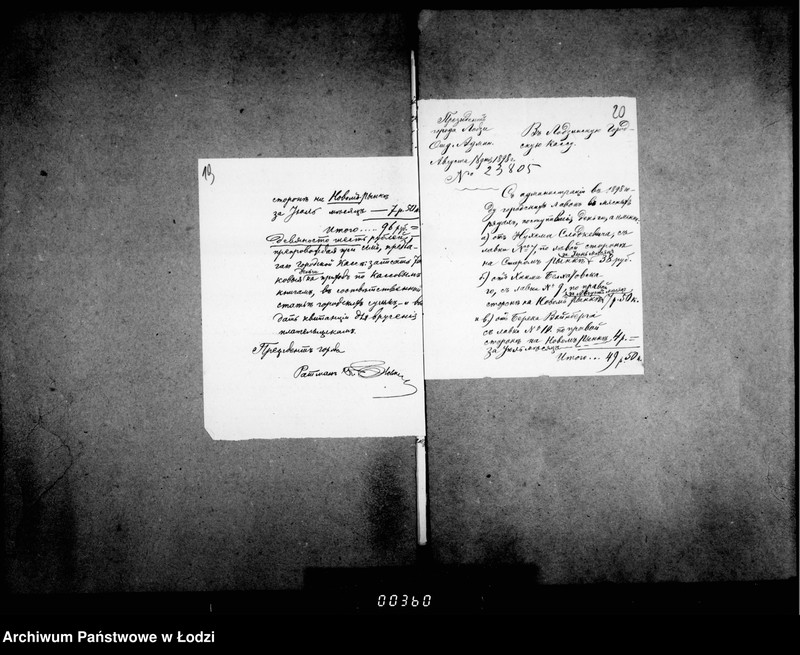 19
сторонѣ на Новомъ Рынкѣ
за Іюль мѣсяцъ — 7 р. 50 к.
Итого.... 96 руб. =
Девяносто шесть рублей,
препровождая при семъ, предла-
гаю Городской Кассѣ: записать
на приходъ по кассовымъ
книгамъ, въ соотвѣтственной
статьѣ городскую сумму и вы-
дать квитанціи для врученія
плательщикамъ.
Президентъ города
Ратманъ
20
Президентъ
города Лодзи
Отд. Админ.
Августа 1898 г.
№ 23805
Въ Лодзинскую Город-
скую Кассу.
Съ администраціи въ 1898 г.
городскихъ лавокъ въ мясныхъ
рядахъ, поступившія деньги, а именно:
а) отъ Нухема Следзевича, съ
лавки № 7, по лѣвой сторонѣ
на Старомъ Рынкѣ 38 руб.
б) отъ
съ лавки № 9, по правой
сторонѣ на Новомъ Рынкѣ 7 р. 50 к.
и в) отъ Берека
съ лавки № по правой
сторонѣ на Новомъ Рынкѣ 4 р. =
за Іюль мѣсяцъ
Итого... 49 р. 50 к.
00360
Archiwum Państwowe w Łodzi